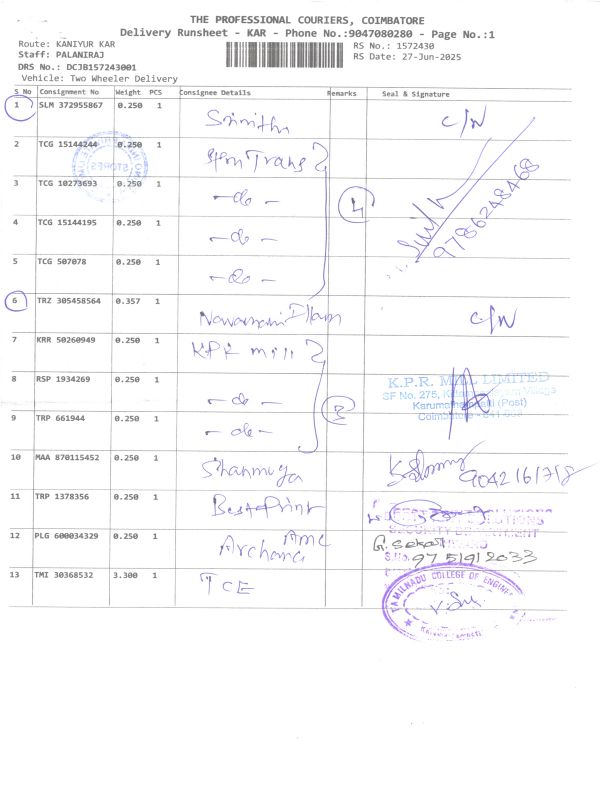 THE PROFESSIONAL COURIERS, COIMBATORE
Delivery Runsheet - KAR - Phone No.:9047080280 - Page No.:1
Route: KANIYUR KAR
RS No.: 1572430
Staff: PALANIRAJ
RS Date: 27-Jun-2025
DRS No.: DCJB157243001
Vehicle: Two Wheeler Delivery
S No Consignment No Weight PCS Consignee Details Remarks Seal & Signature
1 SLM 372955867 0.250 1 C/N
2 TCG 15144244 0.250 1 Trans
3 TCG 10273693 0.250 1 -do-
4
9786248468
4 TCG 15144195 0.250 1 -do-
5 TCG 507078 0.250 1 -do-
6 TRZ 305458564 0.357 1 C/N
7 KRR 50260949 0.250 1 KPR mill
8 RSP 1934269 0.250 1 -do-
3
K.P.R. MILL LIMITED
SF No. 275, Village
Karumathampatti (Post)
Coimbatore - 641 659
9 TRP 661944 0.250 1 -do-
10 MAA 870115452 0.250 1 Shanmuga
11 TRP 1378356 0.250 1 Best Print
SOLUTIONS
SECURITY DEPARTMENT
12 PLG 600034329 0.250 1 Archana
G. Sekar
S.No. 9751912033
13 TMI 30368532 3.300 1 TCE
TAMILNADU COLLEGE OF ENGINEERING